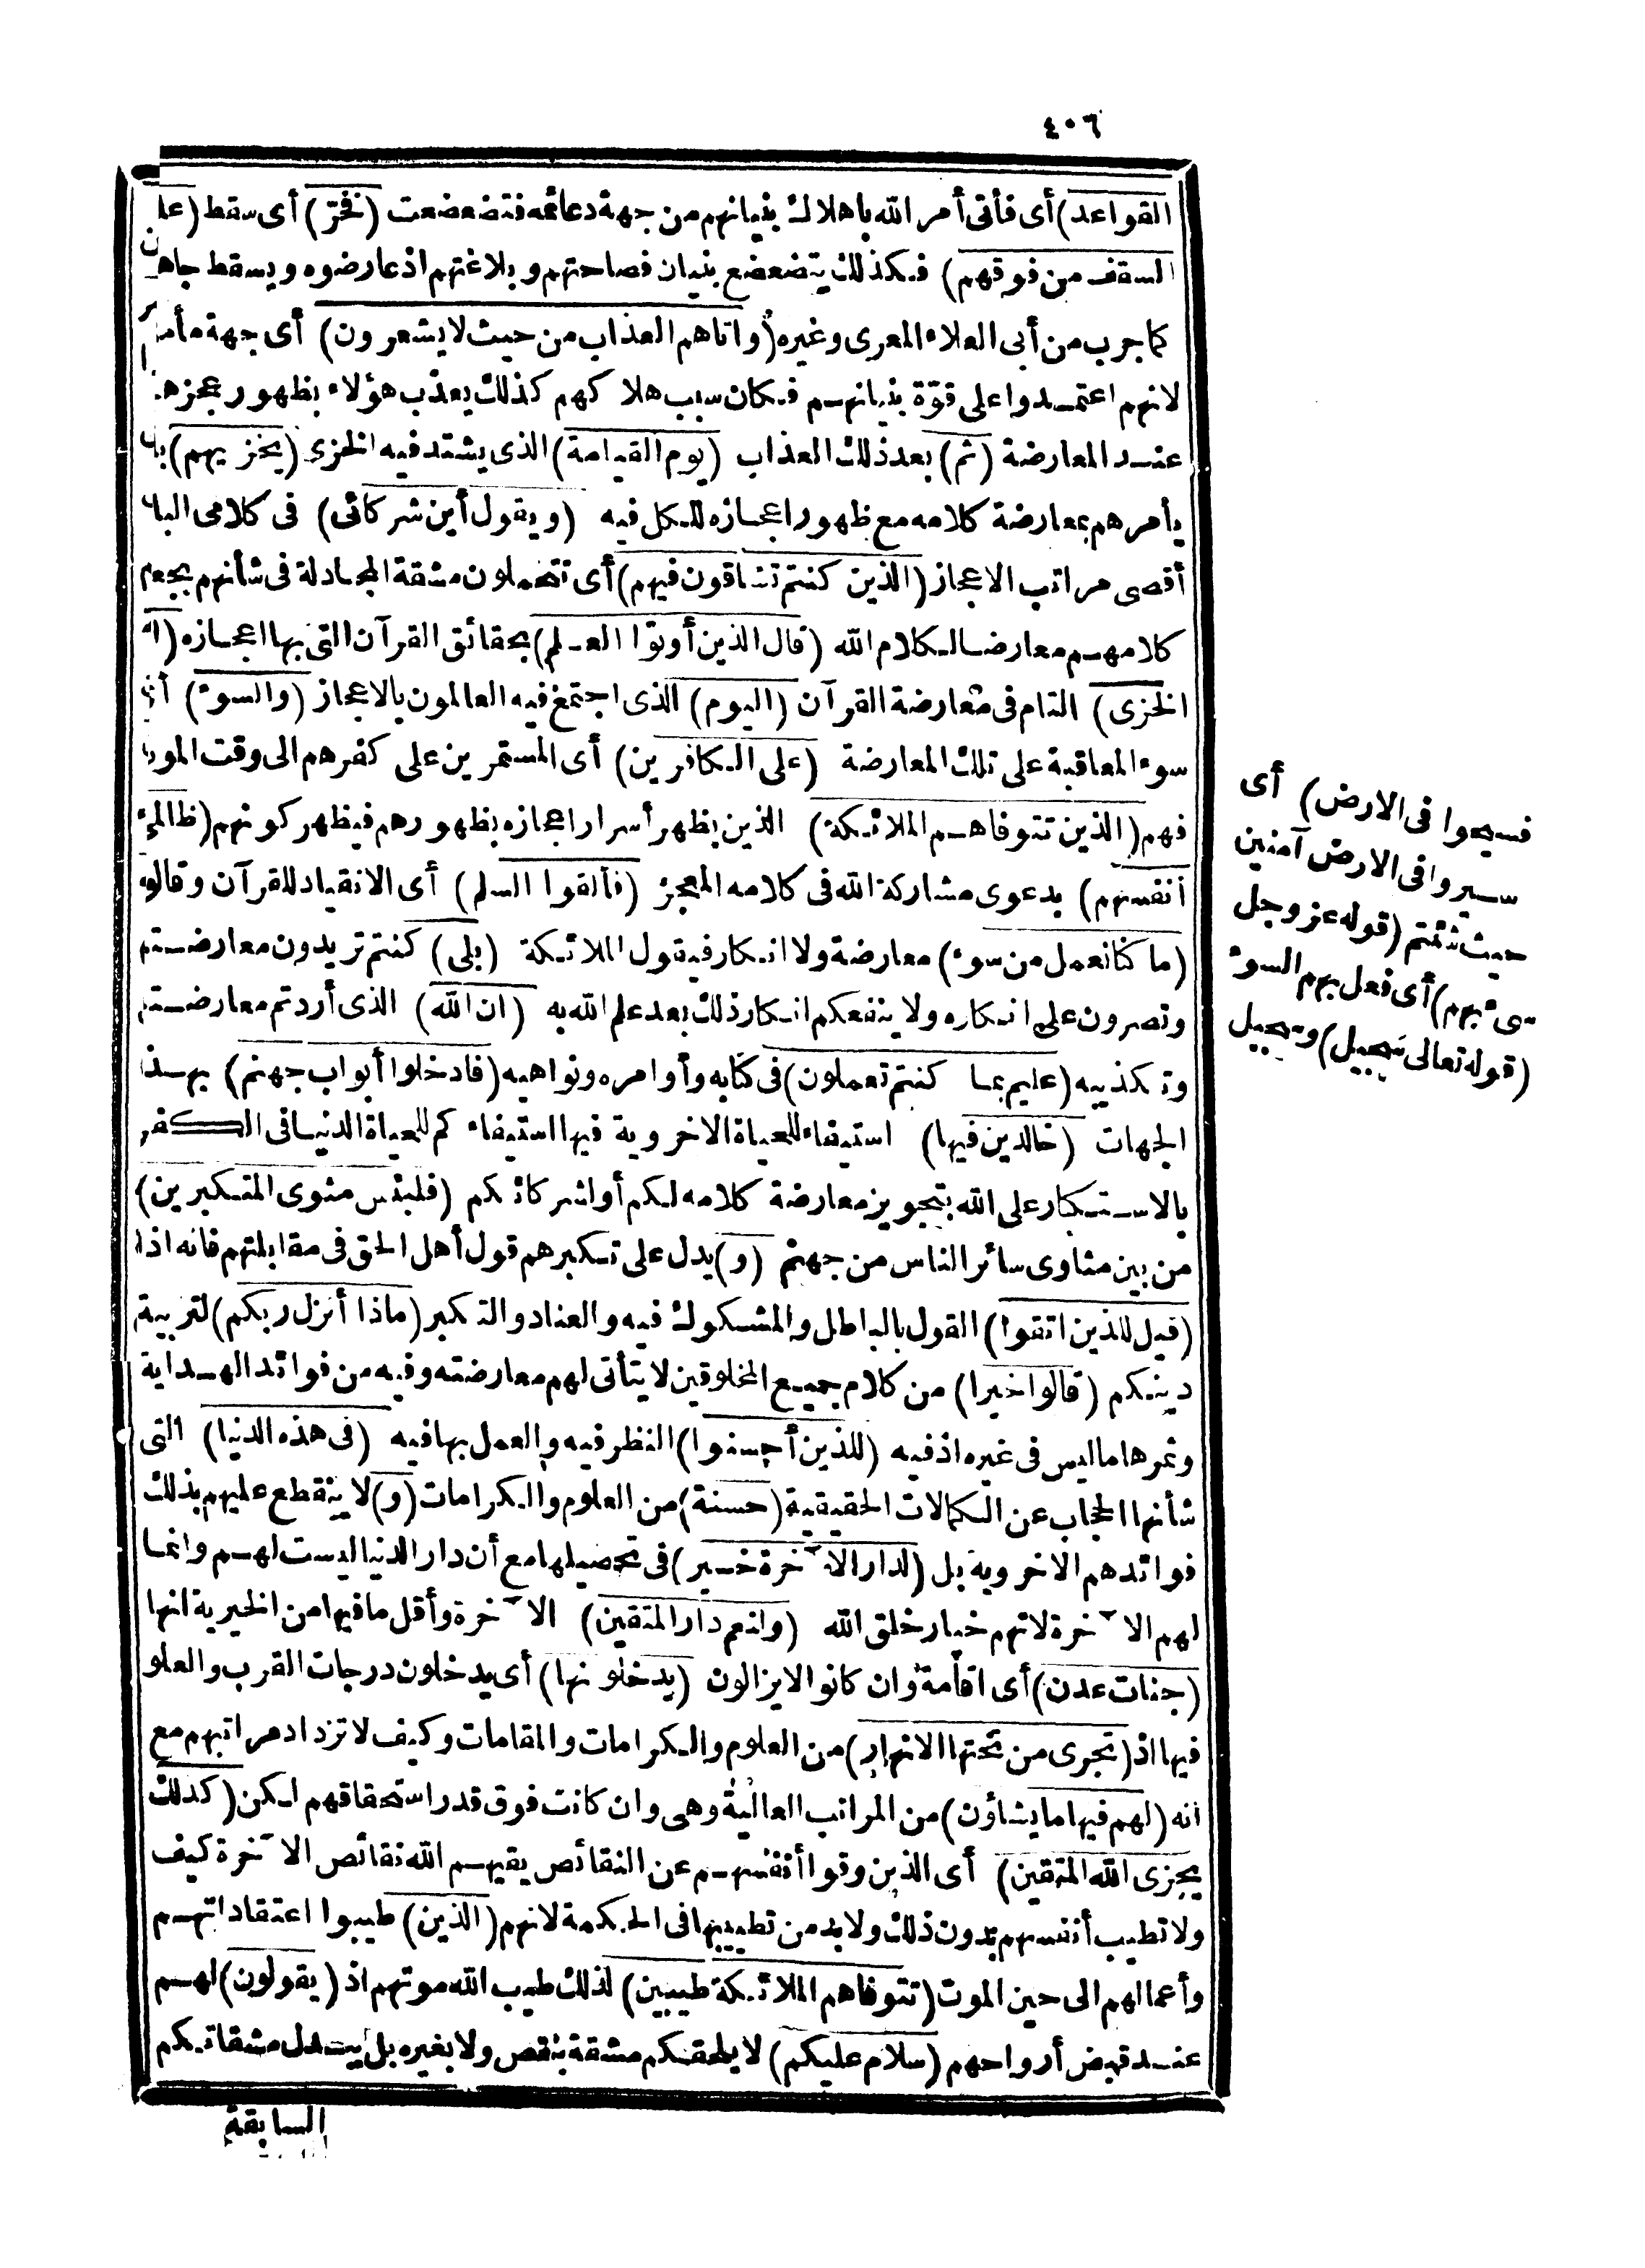 ٤٠٦
القواعد) أى فأتى أمر الله باهلاك بنيانهم من جهة دعائمه فتضعضعت (فخرّ) أى سقط
السقف من فوقهم) فكذلك يتضعضع بنيان فصاحتهم وبلاغتهم اذ عارضوه ويسقط
كما جرب من أبى العلاء المعرى وغيره (وأتاهم العذاب من حيث لا يشعرون) أى جهة
لانهم اعتمدوا على قوّة بنيانهم فكان سبب هلاكهم كذلك يعذب هؤلاء بظهور
عند المعارضة (ثم) بعد ذلك العذاب (يوم القيامة) الذى يشتد فيه الخزى (يخزيهم)
يأمرهم بمعارضة كلامه مع ظهور اعجازه للكل فيه (ويقول أين شركائى) فى كلامى
أقصى مراتب الاعجاز (الذين كنتم تشاقون فيهم) أى تتحملون مشقة المجادلة فى شأنهم
كلامهم معارضا لكلام الله (قال الذين أوتوا العلم) بحقائق القرآن التى بها اعجازه
الخزى) التام فى معارضة القرآن (اليوم) الذى اجتمع فيه العالمون بالاعجاز (والسوء)
سوء المعاقبة على تلك المعارضة (على الكافرين) أى المستمرين على كفرهم الى وقت
فهم (الذين تتوفاهم الملائكة) الذين يظهر أسرار اعجازه بظهورهم فيظهر كونهم
أنفسهم) بدعوى مشاركة الله فى كلامه المعجز (فألقوا السلم) أى الانقياد للقرآن
(ما كنا نعمل من سوء) معارضة ولا انكار فيقول الملائكة (بلى) كنتم تريدون
وتصرون على انكاره ولا ينفعكم انكار ذلك بعد علم الله به (ان الله) الذى أردتم
وتكذيبه (عليم بما كنتم تعملون) فى كتابه وأوامره ونواهيه (فادخلوا أبواب جهنم)
الجهات (خالدين فيها) استيفاء للحياة الاخروية فيها استيفاءكم للحياة الدنيا فى الكفر
بالاستكبار على الله بتجويز معارضة كلامه لكم أو لشركائكم (فلبئس مثوى المتكبرين)
من بين مثاوى سائر الناس من جهنم (و) يدل على تكبرهم قول أهل الحق فى مقابلتهم فانه اذا
(قيل للذين اتقوا) القول بالباطل والمشكوك فيه والعناد والتكبر (ماذا أنزل ربكم) لتربية
دينكم (قالوا خيرا) من كلام جميع المخلوقين لا يتأتى لهم معارضته وفيه من فوائد الهداية
وثمرها ما ليس فى غيره اذ فيه (للذين أحسنوا) النظر فيه والعمل بما فيه (فى هذه الدنيا) التى
شأنها الحجاب عن الكمالات الحقيقية (حسنة) من العلوم والكرامات (و) لا ينقطع عليهم بذلك
فوائدهم الاخروية بل (لدار الآخرة خير) فى تحصيلها مع أن دار الدنيا ليست لهم وانما
لهم الآخرة لانهم خيار خلق الله (ولنعم دار المتقين) الآخرة وأقل ما فيها من الخيرية انها
(جنات عدن) أى اقامة وان كانوا لا يزالون (يدخلونها) أى يدخلون درجات القرب والعلو
فيها اذ (تجرى من تحتها الانهار) من العلوم والكرامات والمقامات وكيف لا تزداد مراتبهم مع
أنه (لهم فيها ما يشاؤن) من المراتب العالية وهى وان كانت فوق قدر استحقاقهم لكن (كذلك
يجزى الله المتقين) أى الذين وقوا أنفسهم عن النقائص يقيهم الله نقائص الآخرة كيف
ولا تطيب أنفسهم بدون ذلك ولا بد من تطييبها فى الحكمة لانهم (الذين) طيبوا اعتقاداتهم
وأعمالهم الى حين الموت (تتوفاهم الملائكة طيبين) لذلك طيب الله موتهم اذ (يقولون) لهم
عند قبض أرواحهم (سلام عليكم) لا يلحقكم مشقة بنقص ولا بغيره بل يبدل مشقاتكم
السابقة
فسيحوا فى الارض) أى
سيروا فى الارض آمنين
حيث شئتم (قوله عز وجل
سىء بهم) أى فعل بهم السوء
(قوله تعالى سجيل) وسجيل